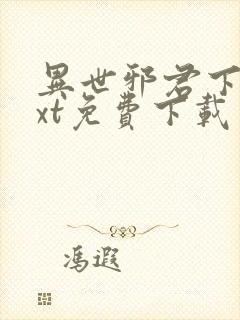 異世邪君下
xt免費下載
馮遐